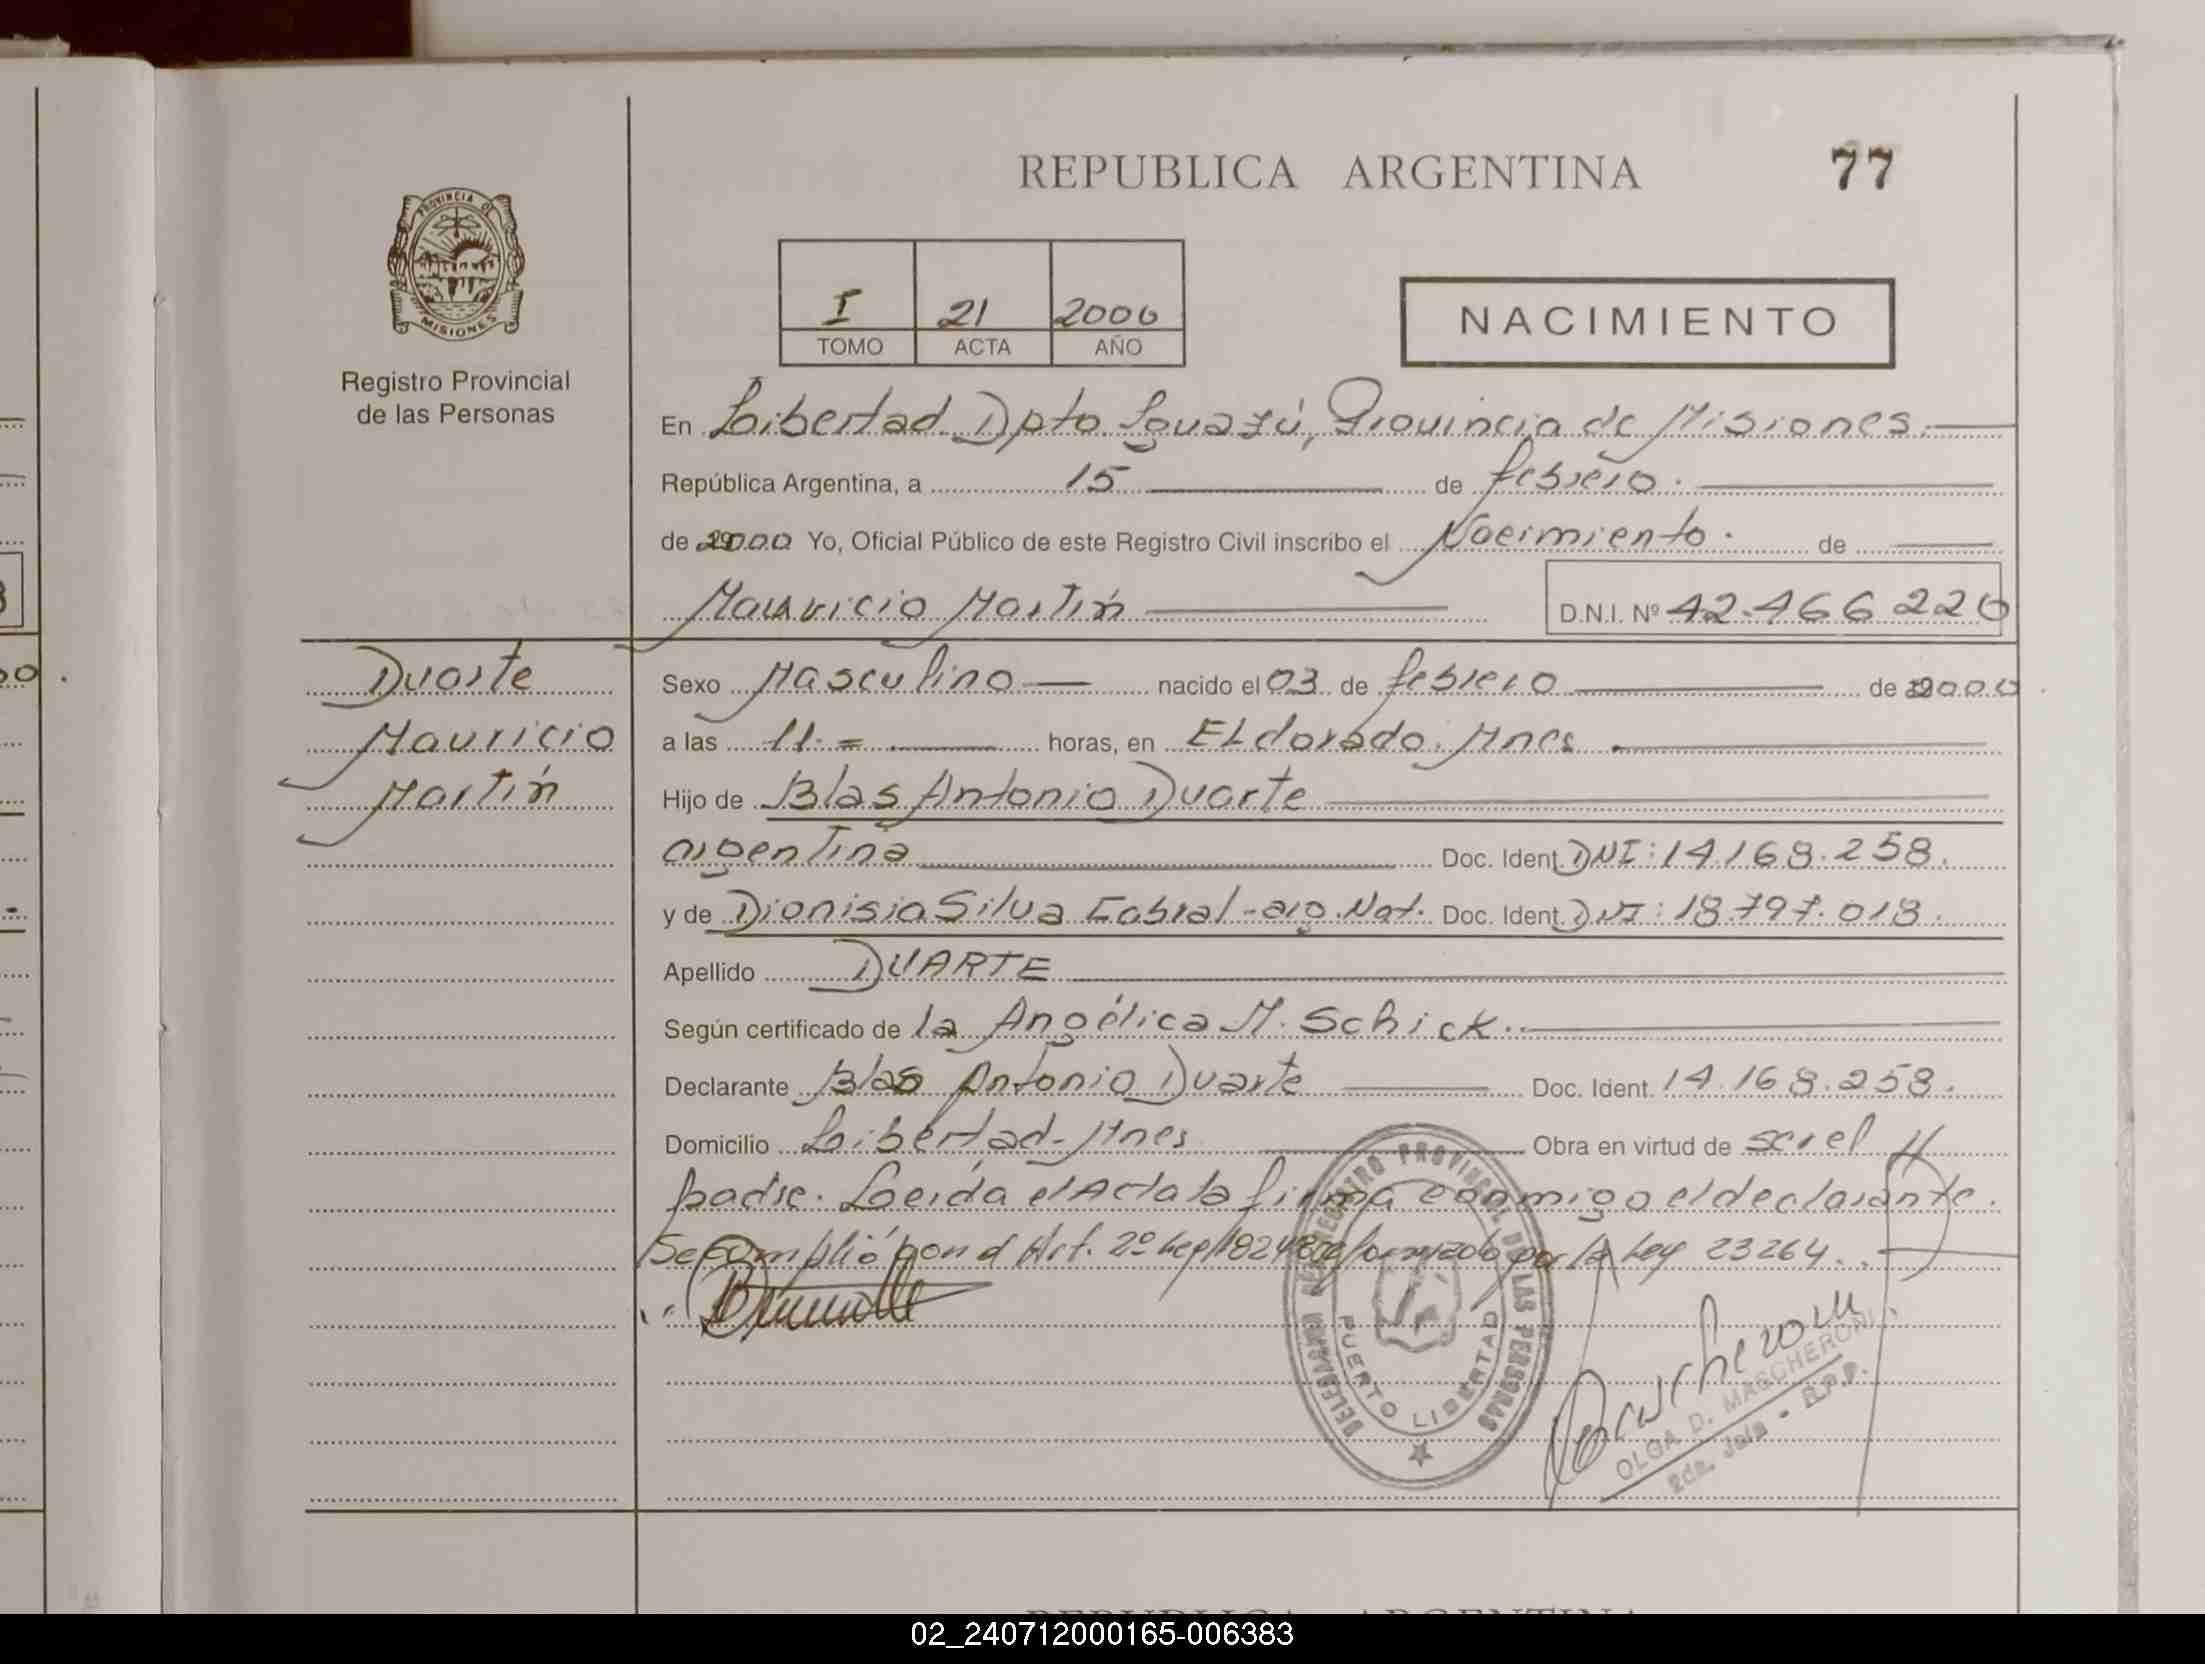 REPUBLICA ARGENTINA 77
PROVINCIA DE MISIONES
Registro Provincial
de las Personas
I 21 2000
TOMO ACTA AÑO
NACIMIENTO
En Libertad Dpto Iguazú, Provincia de Misiones.
República Argentina, a 15 de febrero.
de 2000 Yo, Oficial Público de este Registro Civil inscribo el Nacimiento. de
Mauricio Martín D.N.I. Nº 42.466 220
Duarte
Mauricio
Martín
Sexo Masculino nacido el 03 de febrero de 2000
a las 11.= horas, en Eldorado. Mnes.
Hijo de Blas Antonio Duarte
argentina Doc. Ident. DNI: 14.168.258.
y de Dionisia Silva Cabral - arg. Nat. Doc. Ident. DNI: 18.797.018.
Apellido DUARTE
Según certificado de la Angélica M. Schick.
Declarante Blas Antonio Duarte Doc. Ident. 14.168.258.
Domicilio Libertad - Mnes Obra en virtud de ser el
padre. Leída el Acta la firma conmigo el declarante.
Se cumplió con el Art. 2º Ley 18248 reformado por la Ley 23264.
DELEGACION DEL REGISTRO PROVINCIAL DE LAS PERSONAS
PUERTO LIBERTAD
OLGA D. MASCHERONI
2da. Jefa - R.P.P.
REPUBLICA ARGENTINA
02_240712000165-006383